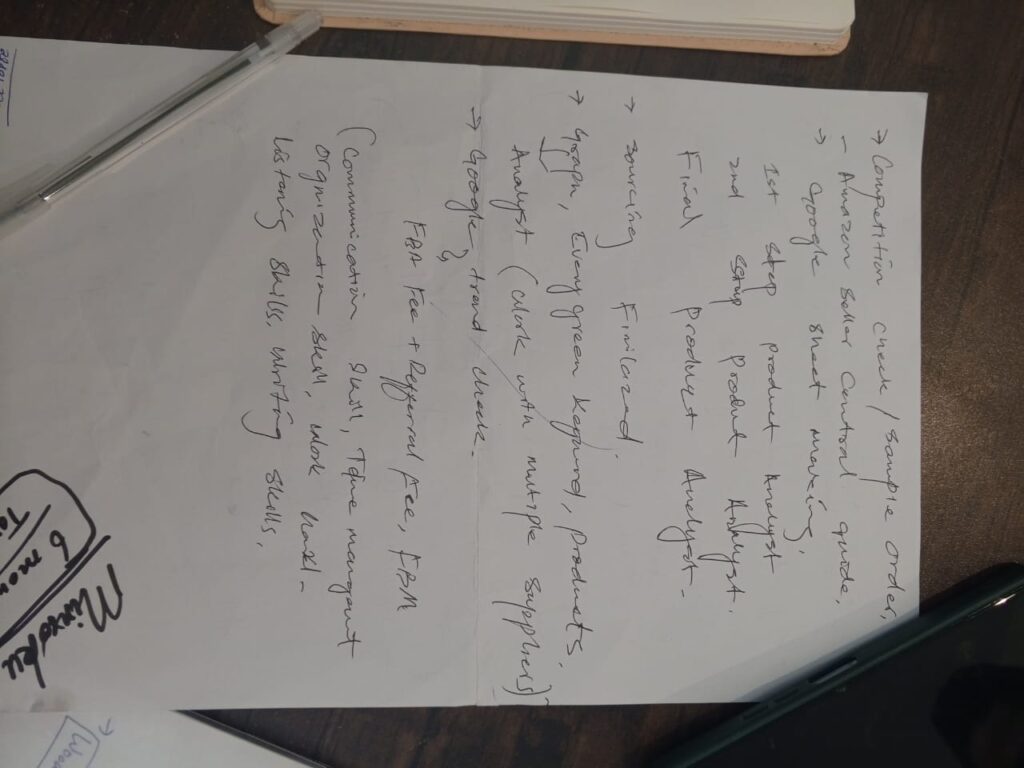 → Competition check / sample order,
- Amazon Seller Central guide,
→ Google sheet marking,
1st step product Analyst
2nd step product Analyst.
Final product Analyst-
→ sourcing Finilazed.
→ Graph, Every green keyword, products,
Analyst (work with mutipe suppliers)-
→ Google, trand check-
FBA Fee + Refferral Fee, FBM
(Communication skill, Time managant
orgnization skill, work
Listing skills, writing skills,
6 mon